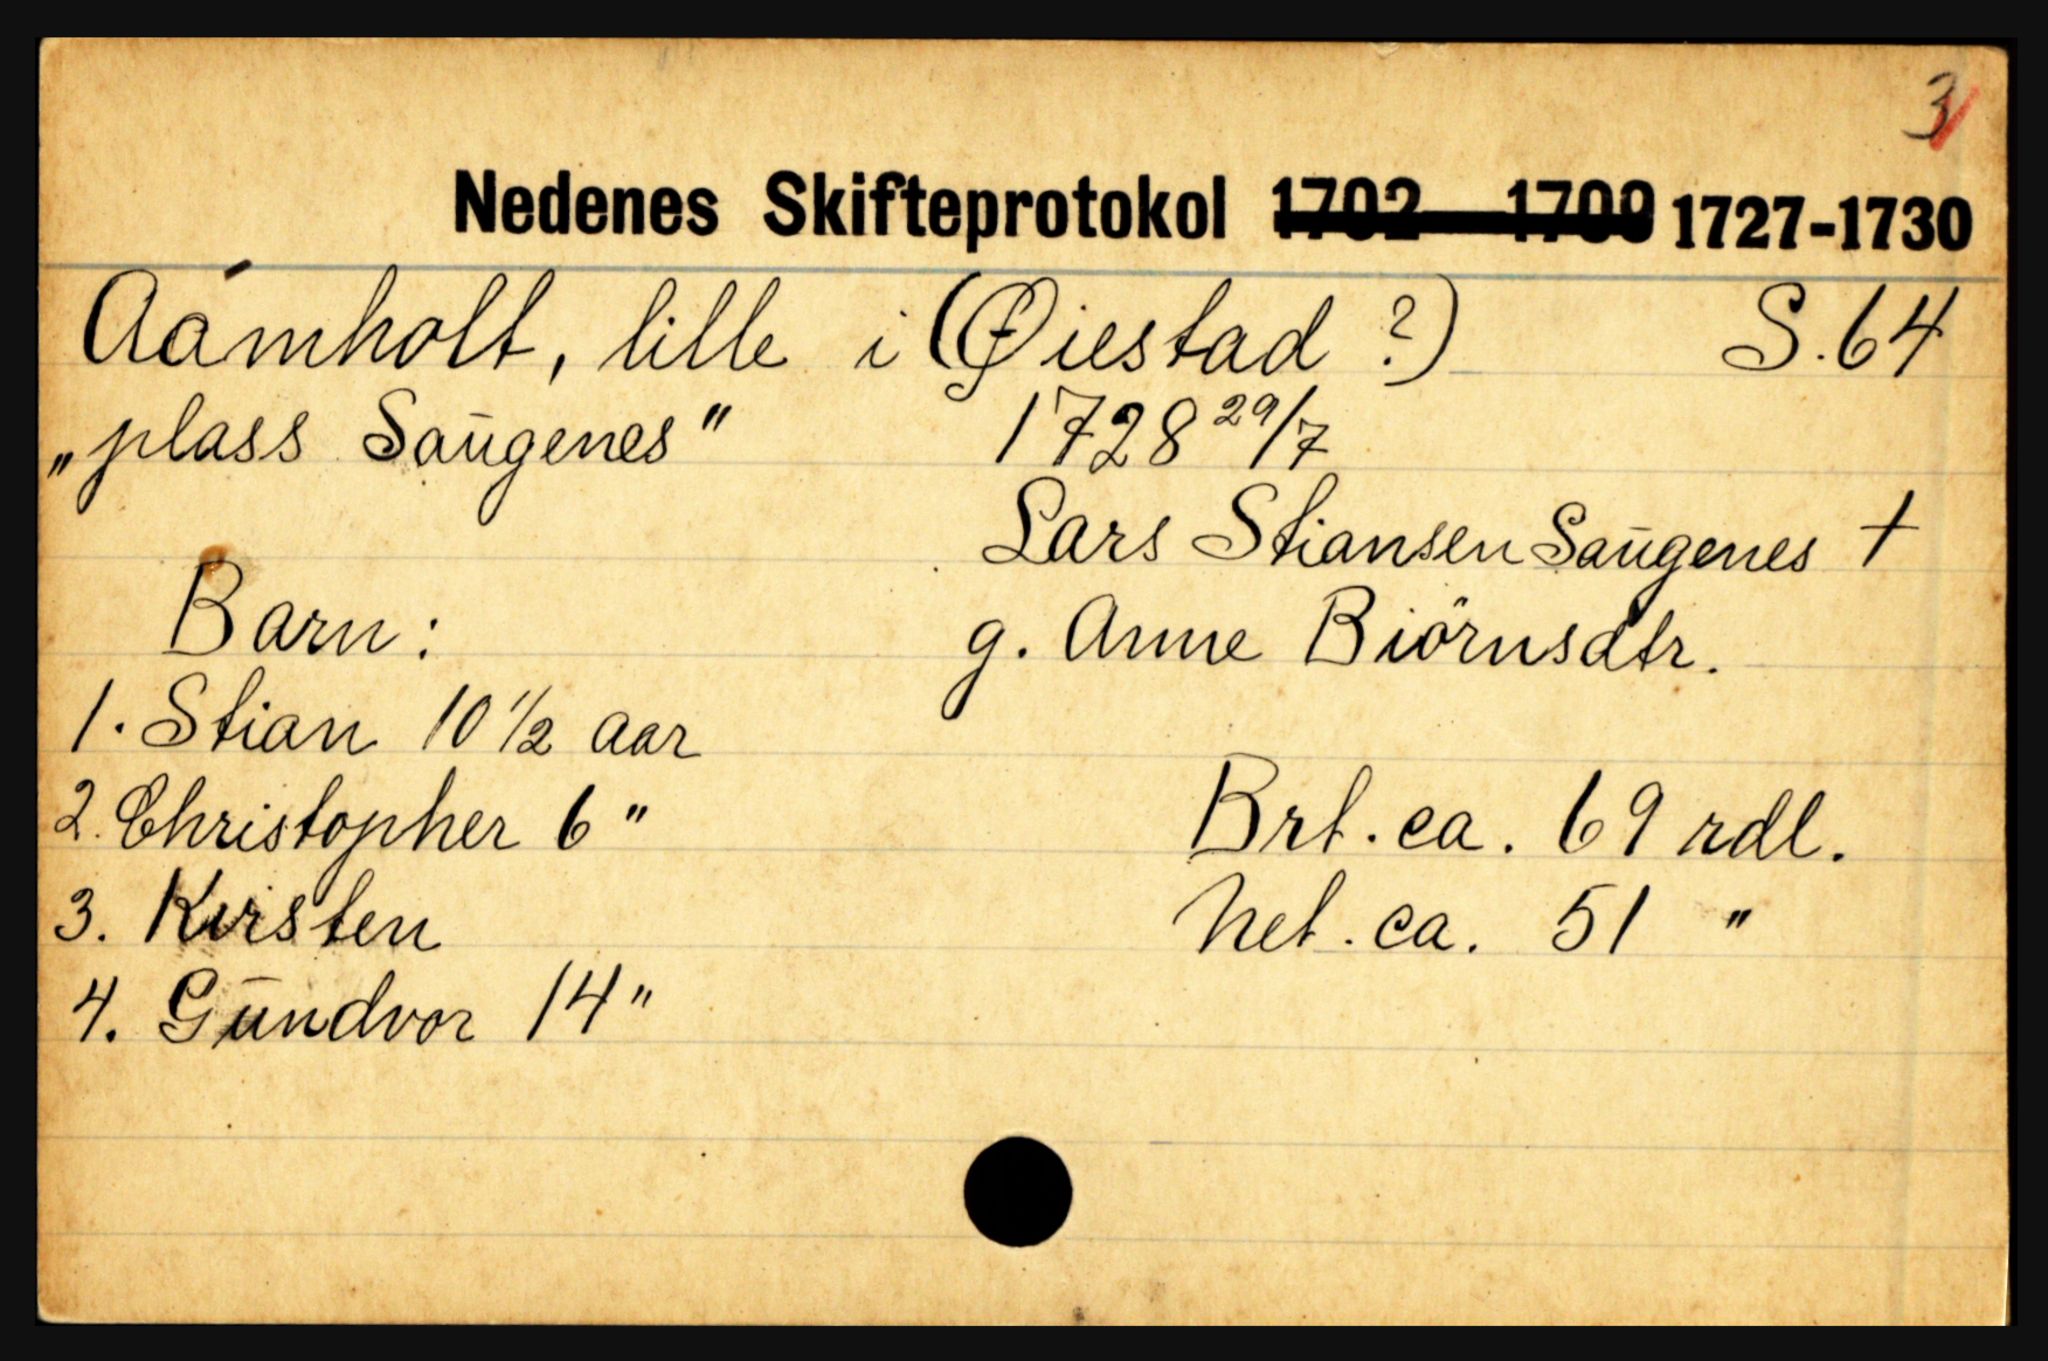 3
Nedenes Skifteprotokol 1702 1709 1727-1730
Aamholt, lille i (Øiestad ?) S. 64
„plass Saugenes" 1728 29/7
Lars Stiansen Saugenes †
Barn: g. Anne Biörnsdtr.
1. Stian 10 1/2 aar
2. Christopher 6 " Brt. ca. 69 rdl.
3. Kirsten Net. ca. 51 "
4. Gundvor 14 "